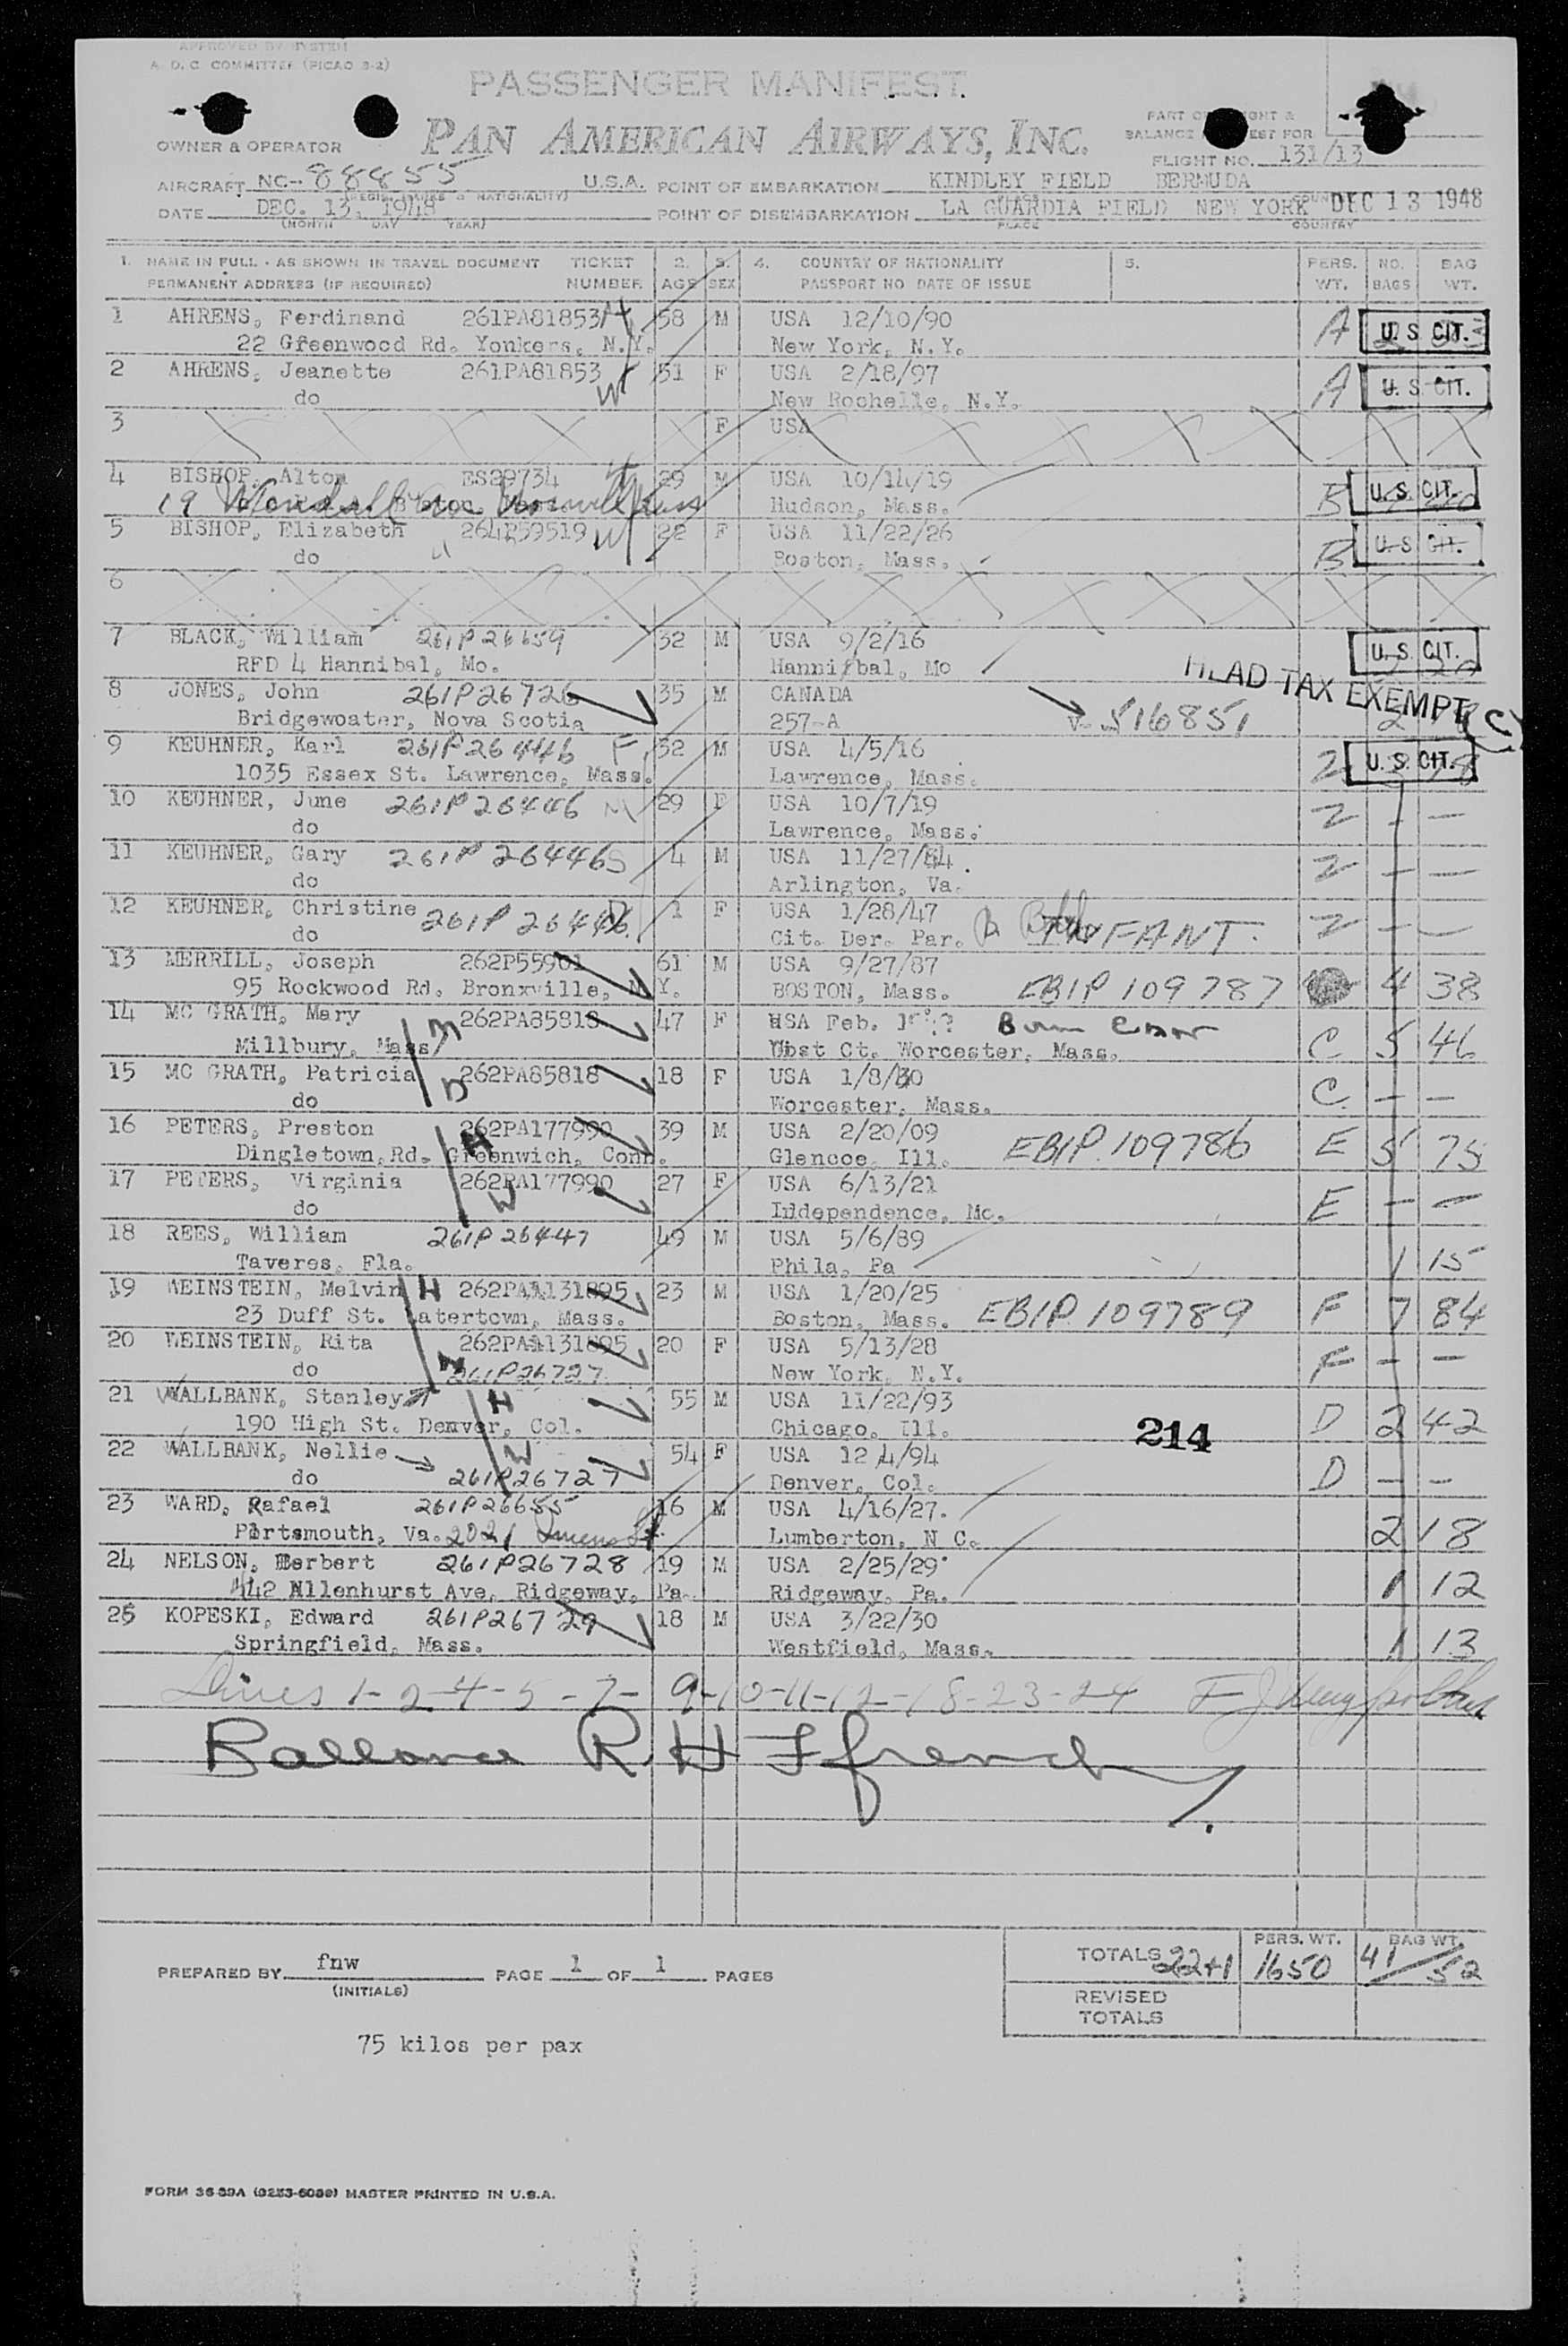 APPROVED BY SYSTEM
A. O. C. COMMITTEE (PICAO 3-2)
PASSENGER MANIFEST
OWNER & OPERATOR PAN AMERICAN AIRWAYS, INC.
PART OF
BALANCE FOR
FLIGHT NO. 131/13
AIRCRAFT NC-88855 U.S.A. POINT OF EMBARKATION KINDLEY FIELD BERMUDA
DATE DEC. 13, 1948 POINT OF DISEMBARKATION LA GUARDIA FIELD NEW YORK DEC 13 1948
(MONTH DAY YEAR) PLACE COUNTRY
1. NAME IN FULL - AS SHOWN IN TRAVEL DOCUMENT TICKET 2. 3. 4. COUNTRY OF NATIONALITY 5. PERS. NO. BAG
PERMANENT ADDRESS (IF REQUIRED) NUMBER AGE SEX PASSPORT NO DATE OF ISSUE WT. BAGS WT.
1 AHRENS, Ferdinand 261PA81853 H 58 M USA 12/10/90 A U. S. CIT.
22 Greenwood Rd. Yonkers, N.Y. New York, N.Y.
2 AHRENS, Jeanette 261PA81853 W 51 F USA 2/18/97 A U. S. CIT.
do New Rochelle, N.Y.
3 F USA
4 BISHOP, Alton ES29734 H 29 M USA 10/14/19 B U. S. CIT.
19 Hudson, Mass.
5 BISHOP, Elizabeth 264P59519 W 22 F USA 11/22/26 B U. S. CIT.
do Boston, Mass.
6
7 BLACK, William 261P26659 32 M USA 9/2/16 U. S. CIT.
RFD 4 Hannibal, Mo. Hannibal, Mo
8 JONES, John 261P26726 35 M CANADA HEAD TAX EXEMPT (C)
Bridgewoater, Nova Scotia 257-A V-516851
9 KEUHNER, Karl 261P26446 F 32 M USA 4/5/16 Z U. S. CIT.
1035 Essex St. Lawrence, Mass. Lawrence, Mass.
10 KEUHNER, June 261P26446 M 29 F USA 10/7/19 Z - -
do Lawrence, Mass.
11 KEUHNER, Gary 261P26446 S 4 M USA 11/27/44. Z - -
do Arlington, Va.
12 KEUHNER, Christine 261P26446 D 1 F USA 1/28/47 Z - -
do Cit. Der. Par. INFANT.
13 MERRILL, Joseph 262P55901 61 M USA 9/27/87
95 Rockwood Rd. Bronxville, N.Y. BOSTON, Mass. EBIP 109787 4 38
14 MC GRATH, Mary M 262PA85818 47 F USA Feb.
Millbury, Mass Worcester, Mass. C 5 46
15 MC GRATH, Patricia D 262PA85818 18 F USA 1/8/30
do Worcester, Mass. C - -
16 PETERS, Preston H 262PA177990 39 M USA 2/20/09 EBIP.109786 E 5 75
Dingletown,Rd. Greenwich, Conn. Glencoe, Ill.
17 PETERS, Virginia W 262PA177990 27 F USA 6/13/21 E - -
do Independence, Mo.
18 REES, William 261P26447 49 M USA 5/6/89
Taveres, Fla. Phila, Pa 1 15
19 WEINSTEIN, Melvin H 262PA131895 23 M USA 1/20/25 EBIP.109789 F 7 84
23 Duff St. Watertown, Mass. Boston, Mass.
20 WEINSTEIN, Rita W 262PA131895 20 F USA 5/13/28 F - -
do 261P26727 New York, N.Y.
21 WALLBANK, Stanley H 55 M USA 11/22/93 D 2 42
190 High St. Denver, Col. Chicago, Ill. 214
22 WALLBANK, Nellie W 54 F USA 12/4/94 D - -
do 261P26727 Denver, Col.
23 WARD, Rafael 261P26655 16 M USA 4/16/27.
Portsmouth, Va. 2021 Lumberton, N C. 2 18
24 NELSON, Herbert 261P26728 19 M USA 2/25/29
442 Allenhurst Ave, Ridgeway, Pa. Ridgeway, Pa. 1 12
25 KOPESKI, Edward 261P26729 18 M USA 3/22/30
Springfield, Mass. Westfield, Mass. 1 13
Lines 1-2-4-5-7-9-10-11-12-18-23-24
Ballance R H Ffrench
PREPARED BY fnw PAGE 1 OF 1 PAGES
(INITIALS)
TOTALS 22+1 PERS. WT. 1650 BAG WT. 41/52
REVISED
TOTALS
75 kilos per pax
FORM 36-39A (0253-6089) MASTER PRINTED IN U.S.A.